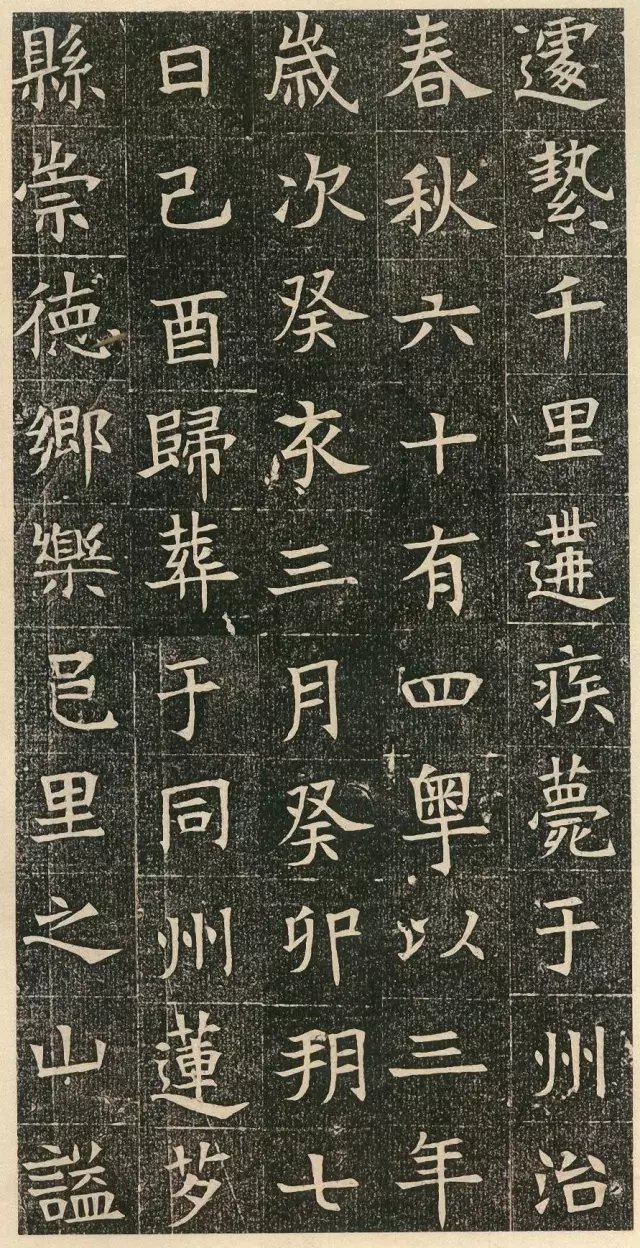 遽縶千里遘疾薨于州治
春秋六十有四粵以三年
歲次癸亥三月癸卯朔七
日己酉歸葬于同州蓮芍
縣崇德鄉樂邑里之山謚